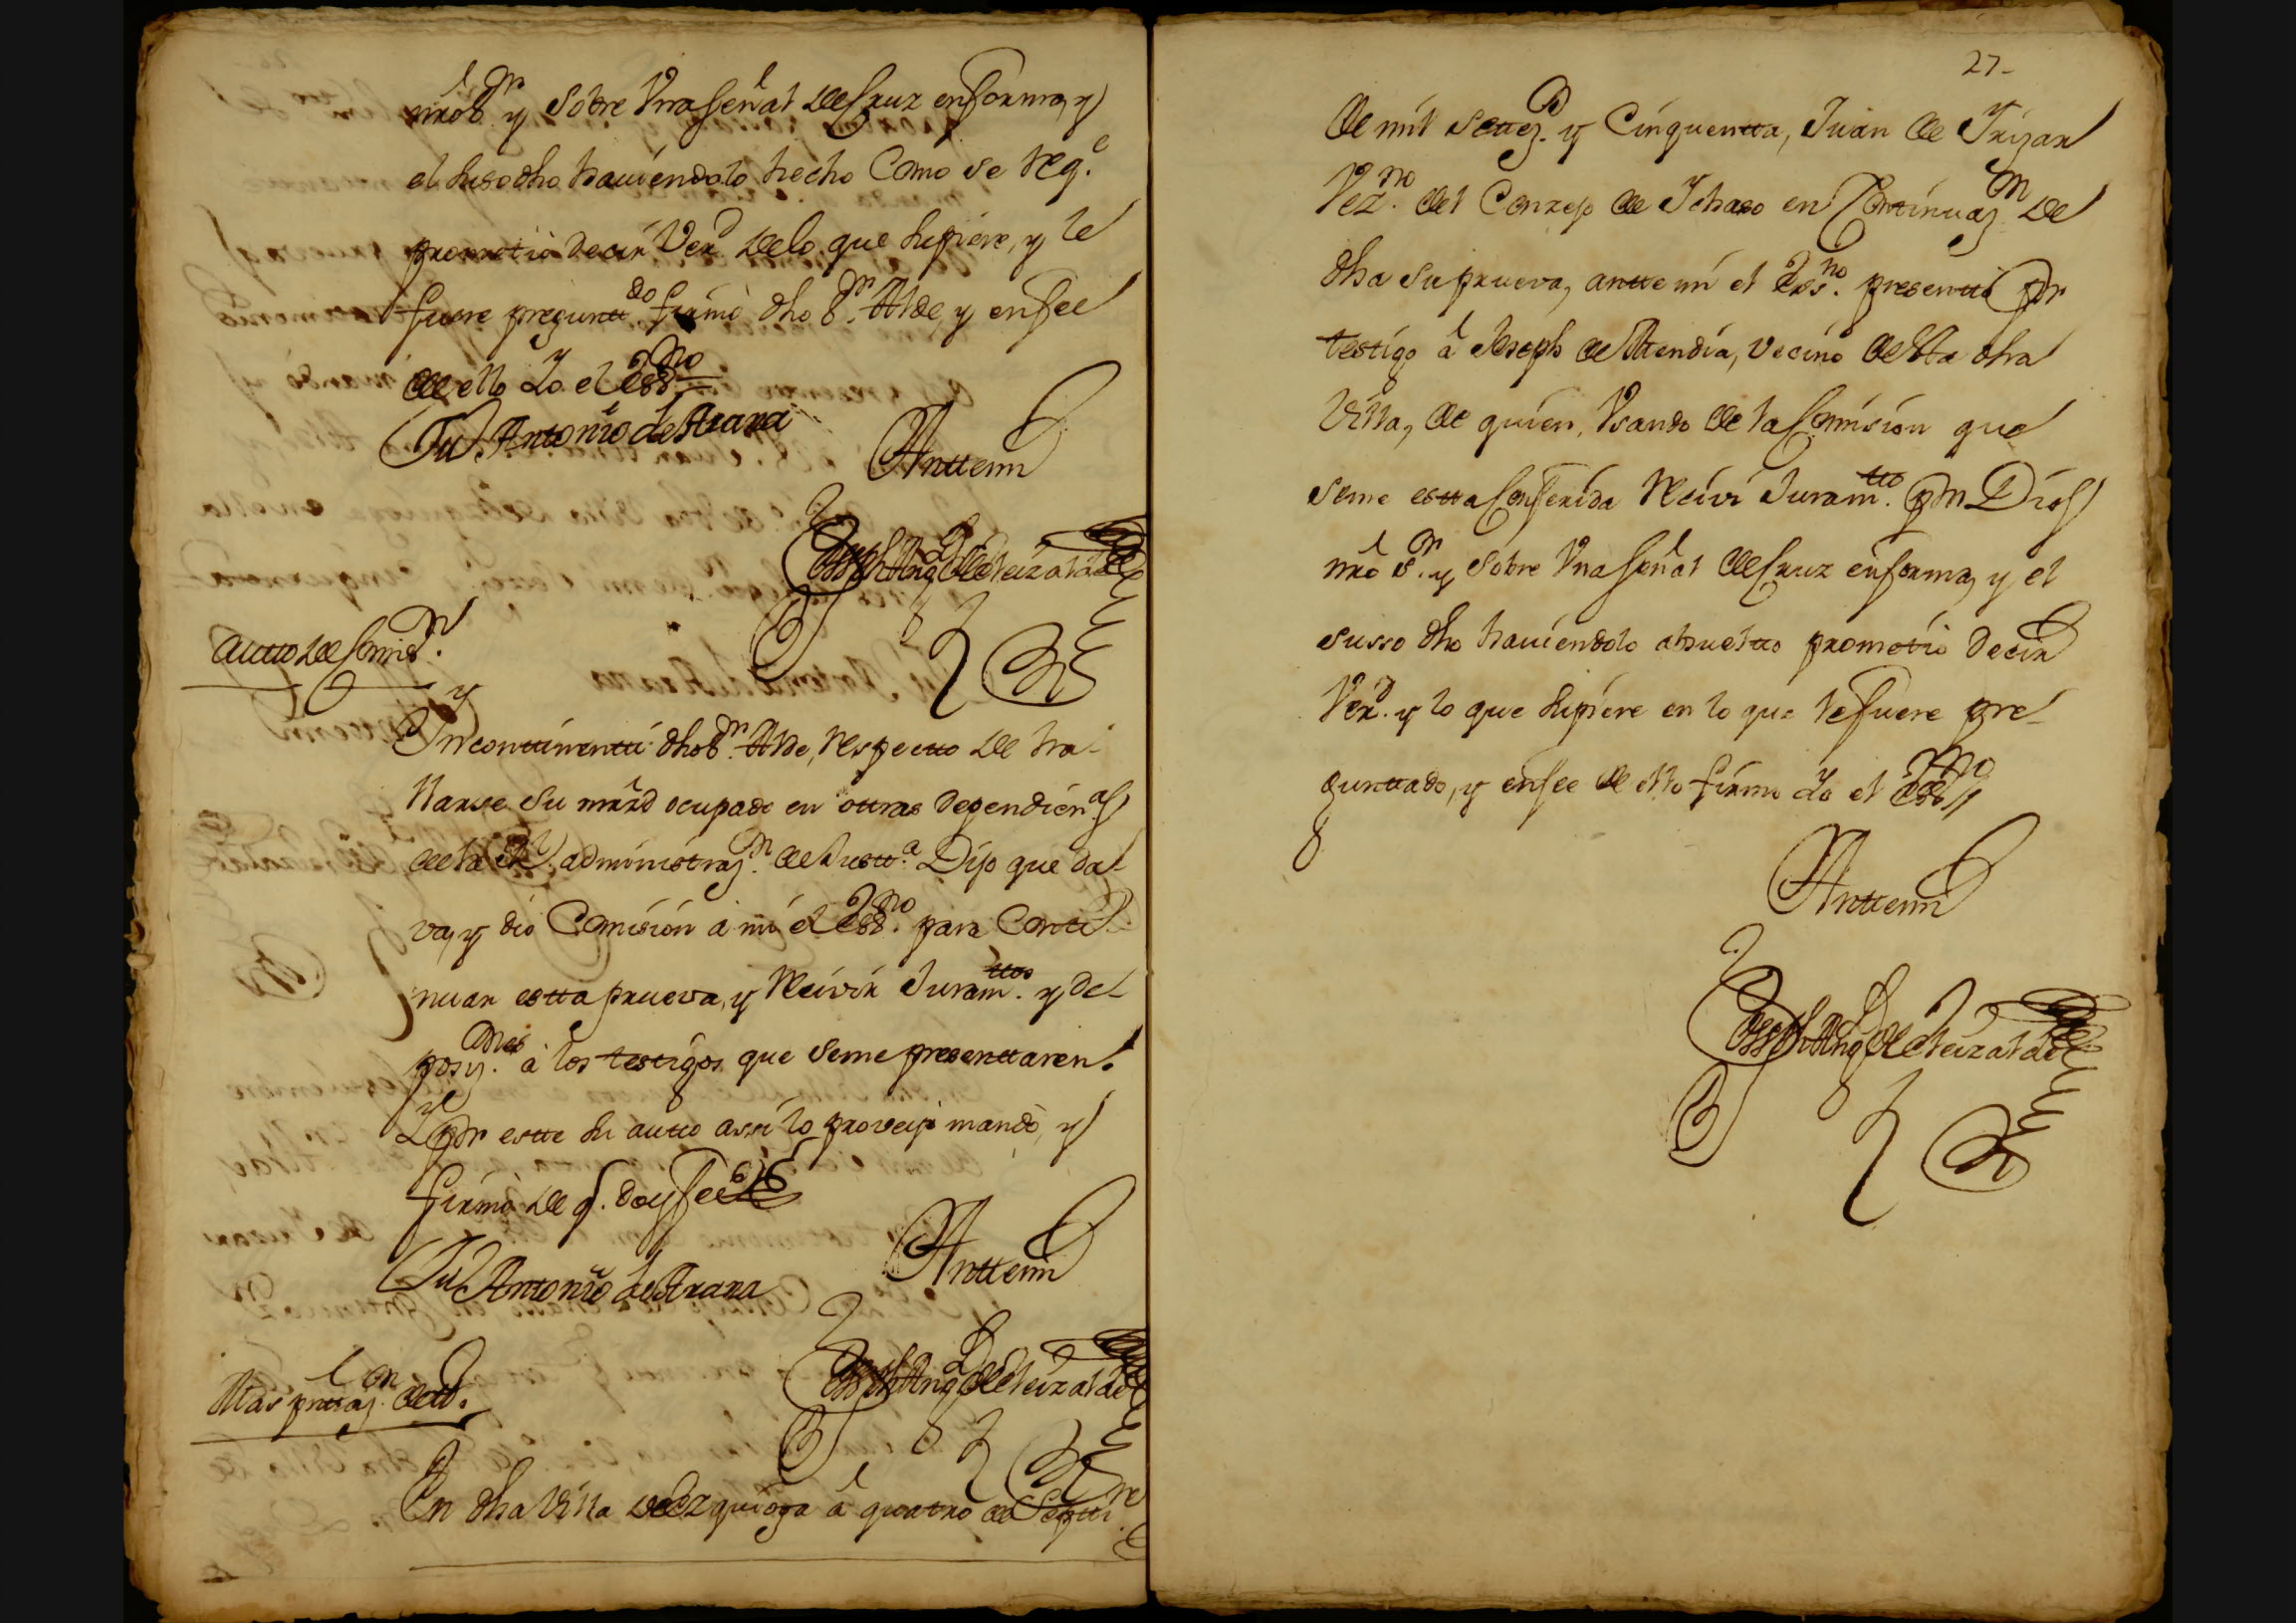 nrõ Sr. y sobre Vna señal de Cruz en forma, y
el suso dho haviendolo hecho Como se req.e
prometió decir Verd de lo que supiere, y le
fuere pregunttdo firmó dho Sr. Alde, y en fee
de ello Yo el essno
Ju Antonio de Arana
Anttemi
Joseph Anttº de Leizalde
Autto de Comisn.
Ynconttinentti dho Sr. Alde, respectto de ha-
llarse su mrd ocupado en ottras dependien.as
de la Rl. administrazn. de Justt.a Dijo que da-
va, y dió Comisión a mi el essno. para Contti-
nuar estta prueva, y Recivir Juramttos. y de-
posiz.ones à los testigos que se me presenttaren.
Y por estte su autto assi lo proveiò mandò, y
firmò de q. doy fee
Ju Antonio de Arana
Anttemi
Joseph Anttº de Leizalde
Mas prettazn. de tt.º
En dha Villa de Ezquioga â quatro de Septtire
27-
de mil settez.s y Cinquentta, Juan de Yrizar
Vezno. del Conzejo de Ychaso en Conttinuazn. de
dha su prueva, antte mi el Essno. presenttó por
testigo â Joseph de Mendia, vecino de Esta dha
Villa, de quien, Vsando de la Comision que
se me estta Conferida Recivi Juramtto. por Dios
nrõ Sr. y sobre Vna señal de Cruz en forma, y el
susso dho haviendolo absueltto prometió decir
Verd. y lo que supiere en lo que le fuere pre-
gunttado, y en fee de ello firmé Yo el Essno
Anttemi
Joseph Anttº de Leizalde